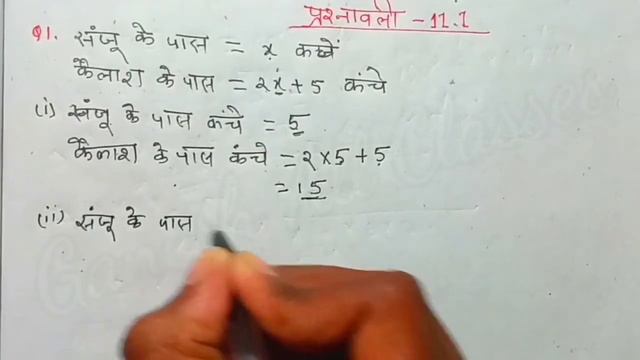 प्रश्नावली - 11.1
Q1. संजू के पास = x कन्चें
कैलाश के पास = 2x + 5 कंचे
(i) संजू के पास कंचे = 5
कैलाश के पास कंचे = 2 x 5 + 5
= 15
(ii) संजू के पास